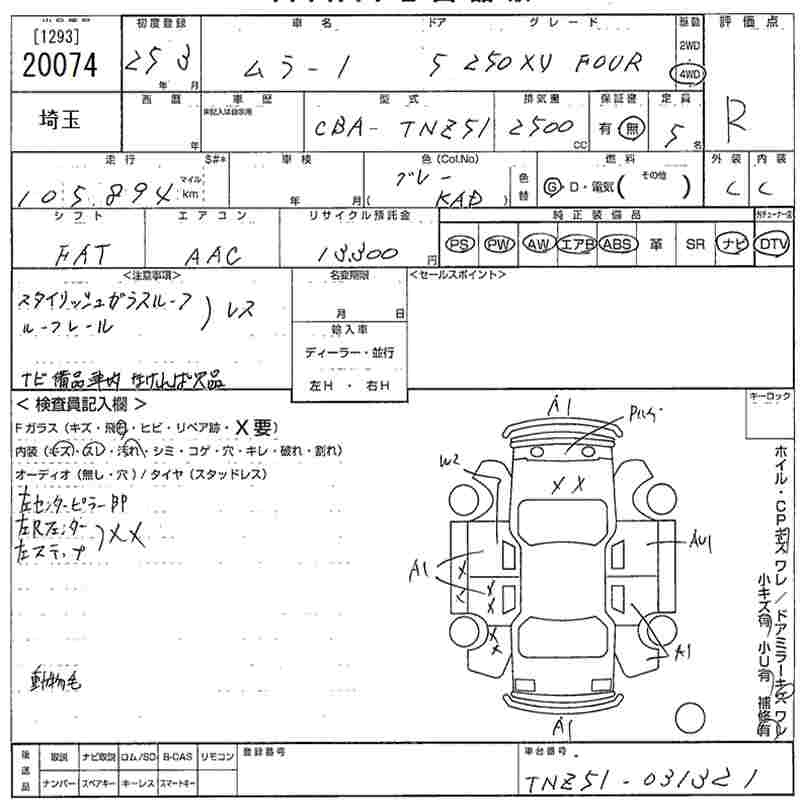 [1293]
20074
初度登録
25 3
年 月
車名
ムラーノ
ドア
5
グレード
250XV FOUR
駆動
2WD
4WD
評価点
R
埼玉
西暦
年
車歴
未記入は自家用
型式
CBA-TNZ51
排気量
2500
CC
保証書
有・無
定員
5
名
走行
105,894
マイル
km
S#*
車検
年 月
色(Col.No)
グレー
( KAD )
色替
燃料
G・D・電気( その他 )
外装
C
内装
C
シフト
FAT
エアコン
AAC
リサイクル預託金
13,300
円
純正装備品
PS PW AW エアB ABS 革 SR ナビ DTV
<注意事項>
スタイリッシュガラスルーフ
ルーフレール
) レス
ナビ備品車内なければ欠品
名変期限
月 日
輸入車
ディーラー・並行
左H ・ 右H
<セールスポイント>
< 検査員記入欄 >
Fガラス(キズ・飛石・ヒビ・リペア跡・X要)
内装(キズ・スレ・汚れ・シミ・コゲ・穴・キレ・破れ・割れ)
オーディオ(無し・穴)/タイヤ(スタッドレス)
左センターピラーBP
左Rフェンダー
左ステップ
) XX
動物毛
キーロック
A1
W2
X X
A1
X
X
X
X
X
AU1
A1
A1
ホイル・CPキズ ワレ/ドアミラーキズ ワレ
小キズ有 小U有 補修有
後送品
取説 ナビ取説 ロム/SD B-CAS リモコン
ナンバー スペアキー キーレス スマートキー
登録番号
車台番号
TNZ51-031321